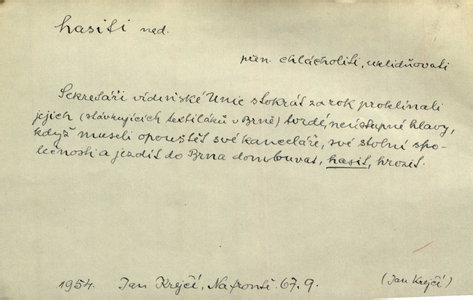 hasiti ned.
přen. chlácholiti, uklidňovati
Sekretáři vídeňské Unie stokrát za rok proklínali
jejich (stávkujících textiláků v Brně) tvrdé, neústupné hlavy,
když museli opouštět své kanceláře, své stolní spo-
lečnosti a jezdit do Brna domlouvat, hasit, hrozit.
1954. Jan Krejčí, Na frontě. 67. 9.
(Jan Krejčí)